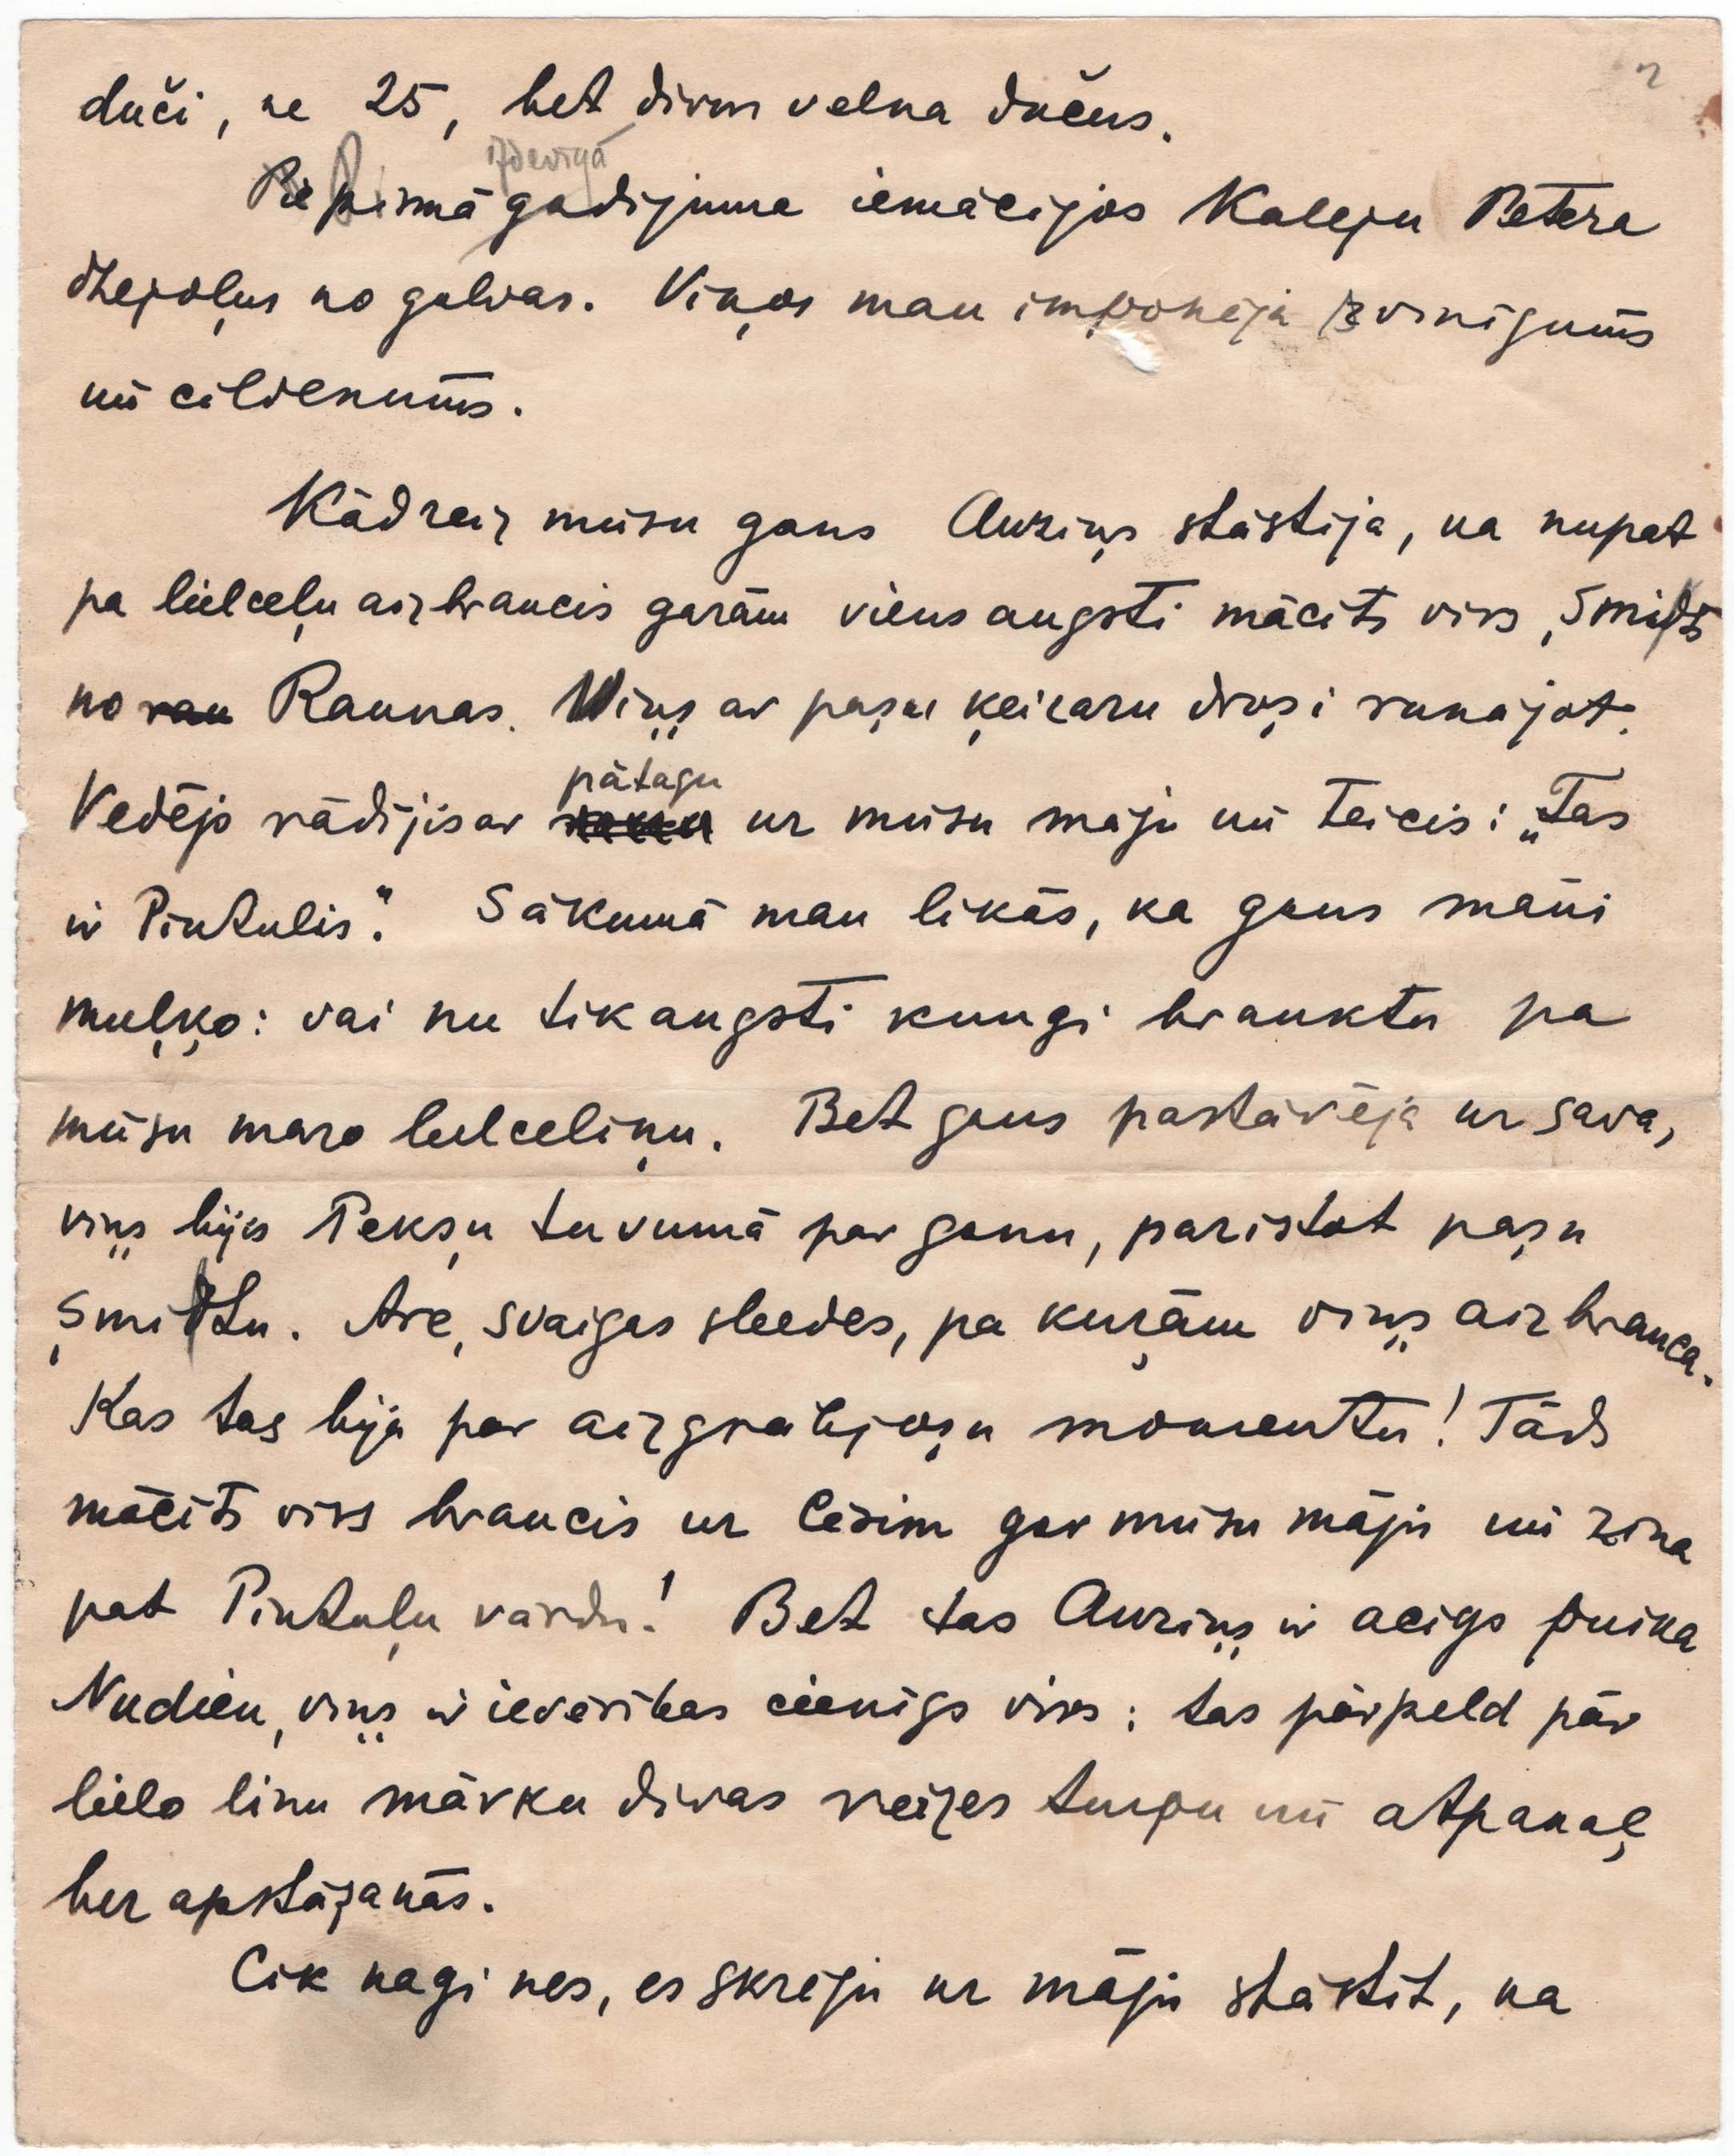 2
duči, ne 25, bet divus velna dučus.
izdevīgā
Pie pirmā gadījuma iemācijos Kaleju Pētera
dzejoļus no galvas. Viņos man imponēja zvanīgums
un cildenums.
Kādreiz mūsu gans Auziņš stāstija, ka nupat
pa lielceļu aizbraucis garām viens augsti mācīts vīrs, Šmidts
no rau Raunas. Viņš ar pašu ķeizaru droši runājot.
pātagu
Vedējs rādījis ar ur mūsu māju un teicis: „Tas
ir Pintulis". Sākumā man likās, ka gans mani
muļķo: vai nu tik augsti kungi brauktu pa
mūsu mazo lielceliņu. Bet gans pastāvēja uz sava,
viņš bijis Pekšu tuvumā par ganu, pazīstot pašu
Šmidtu. Are, svaigas sliedes, pa kuŗām viņš aizbrauca.
Kas tas bija par aizgrābjošu momentu! Tāds
mācīts vīrs braucis uz Cēsīm gar mūsu māju un zina
pat Pintuļu vārdu! Bet tas Auziņš ir acīgs puika
Nudien, viņš ir ievērības cienīgs vīrs: tas pārpeld pār
lielo linu mārku divas reizes turpu un atpakaļ
bez apstāšanās.
Cik nagi nes, es skrēju uz māju stāstīt, ka